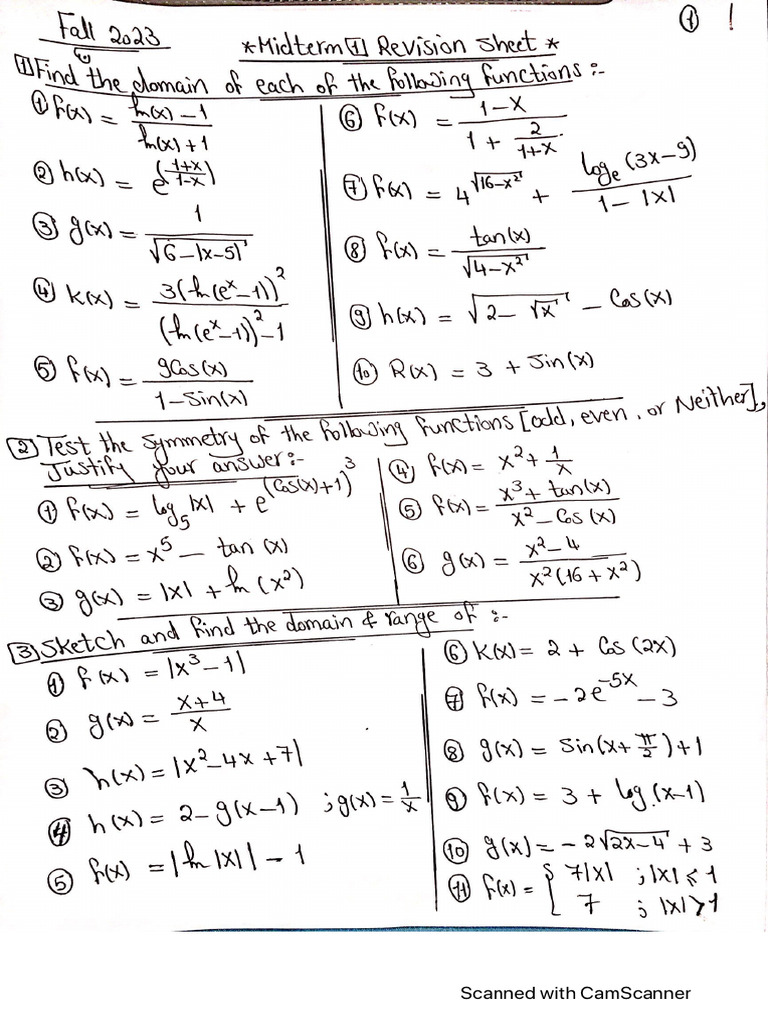 Fall 2023
① !
*Midterm [1] Revision Sheet *
[1] Find the domain of each of the following functions :-
① f(x) = (ln(x) - 1)/(ln(x) + 1)
② h(x) = e^((1+x)/(1-x))
③ g(x) = 1/√(6-|x-5|)
④ k(x) = 3(ln(e^x -1))^2/((ln(e^x -1))^2 -1)
⑤ f(x) = 9Cos(x)/(1-Sin(x))
⑥ f(x) = (1-x)/(1 + 2/(1+x))
⑦ f(x) = 4^√(16-x^2) + log_e (3x-9)/(1-|x|)
⑧ f(x) = tan(x)/√(4-x^2)
⑨ h(x) = √(2-√x) - Cos(x)
⑩ R(x) = 3 + Sin(x)
[2] Test the symmetry of the following functions [odd, even, or Neither],
Justify your answer:-
① f(x) = log_5 |x| + e^(Cos(x)+1)^3
② f(x) = x^5 - tan(x)
③ g(x) = |x| + ln(x^2)
④ f(x) = x^2 + 1/x
⑤ f(x) = (x^3 + tan(x))/(x^2 - Cos(x))
⑥ g(x) = (x^2 - 4)/(x^2(16+x^2))
[3] Sketch and find the domain & range of :-
① f(x) = |x^3 - 1|
② g(x) = (x+4)/x
③ h(x) = |x^2 - 4x + 7|
④ h(x) = 2 - g(x-1) ; g(x) = 1/x
⑤ f(x) = |ln|x|| - 1
⑥ k(x) = 2 + Cos(2x)
⑦ f(x) = -2e^-5x - 3
⑧ g(x) = Sin(x + π/2) + 1
⑨ f(x) = 3 + log(x-1)
⑩ g(x) = -2√(2x-4) + 3
⑪ f(x) = { 7|x| ; |x| ≤ 1
7 ; |x| > 1
Scanned with CamScanner